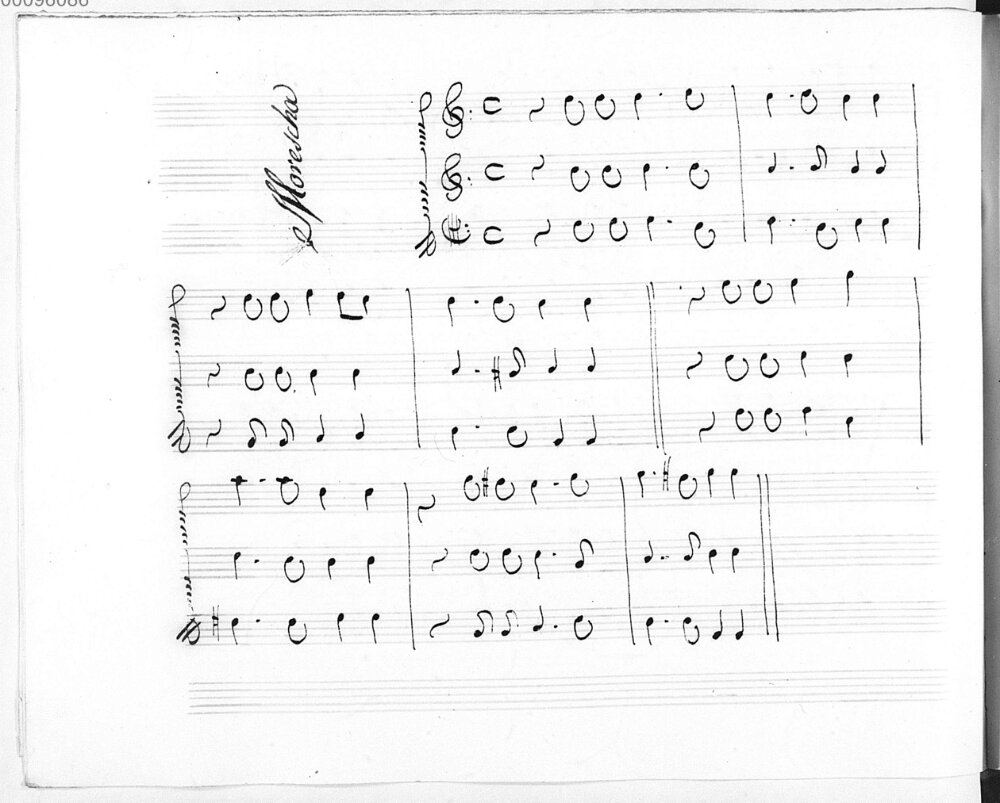 00096086
Morescha